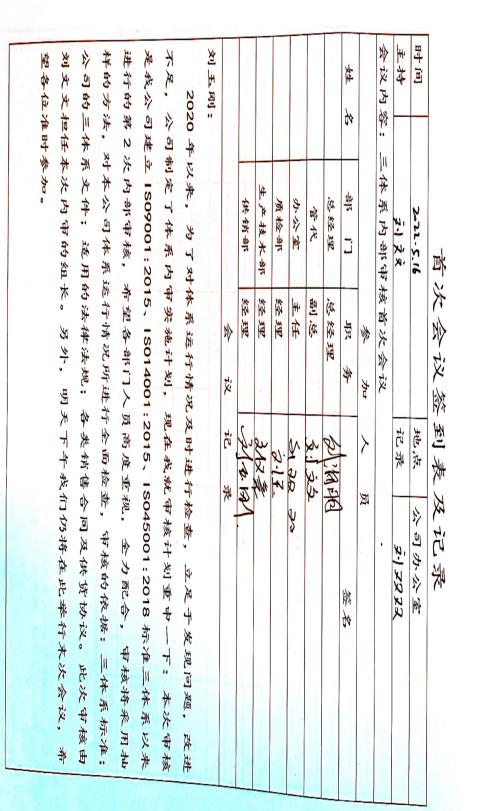 首次会议签到表及记录
时间 2022.5.16 地点 公司办公室
主持 刘文文 记录
会议内容：三体系内部审核首次会议
参加人员
姓名 部门 职务 签名
总经理 总经理
管代 副总
办公室 主任
质检部 经理
生产技术部 经理
供销部 经理
会议记录
刘玉刚：
2020年以来，为了对体系运行情况及时进行检查，立足于发现问题，改进
不足，公司制定了体系内审实施计划，现在我就审核计划重申一下：本次审核
是我公司建立ISO9001:2015、ISO14001:2015、ISO45001:2018标准三体系以来
进行的第2次内部审核，希望各部门人员高度重视，全力配合，审核将采用抽
样的方法，对本公司体系运行情况所进行全面检查，审核的依据：三体系标准；
公司的三体系文件；适用的法律法规；各类销售合同及供货协议。此次审核由
刘文文担任本次内审的组长。另外，明天下午我们仍将在此举行末次会议，希
望各位准时参加。